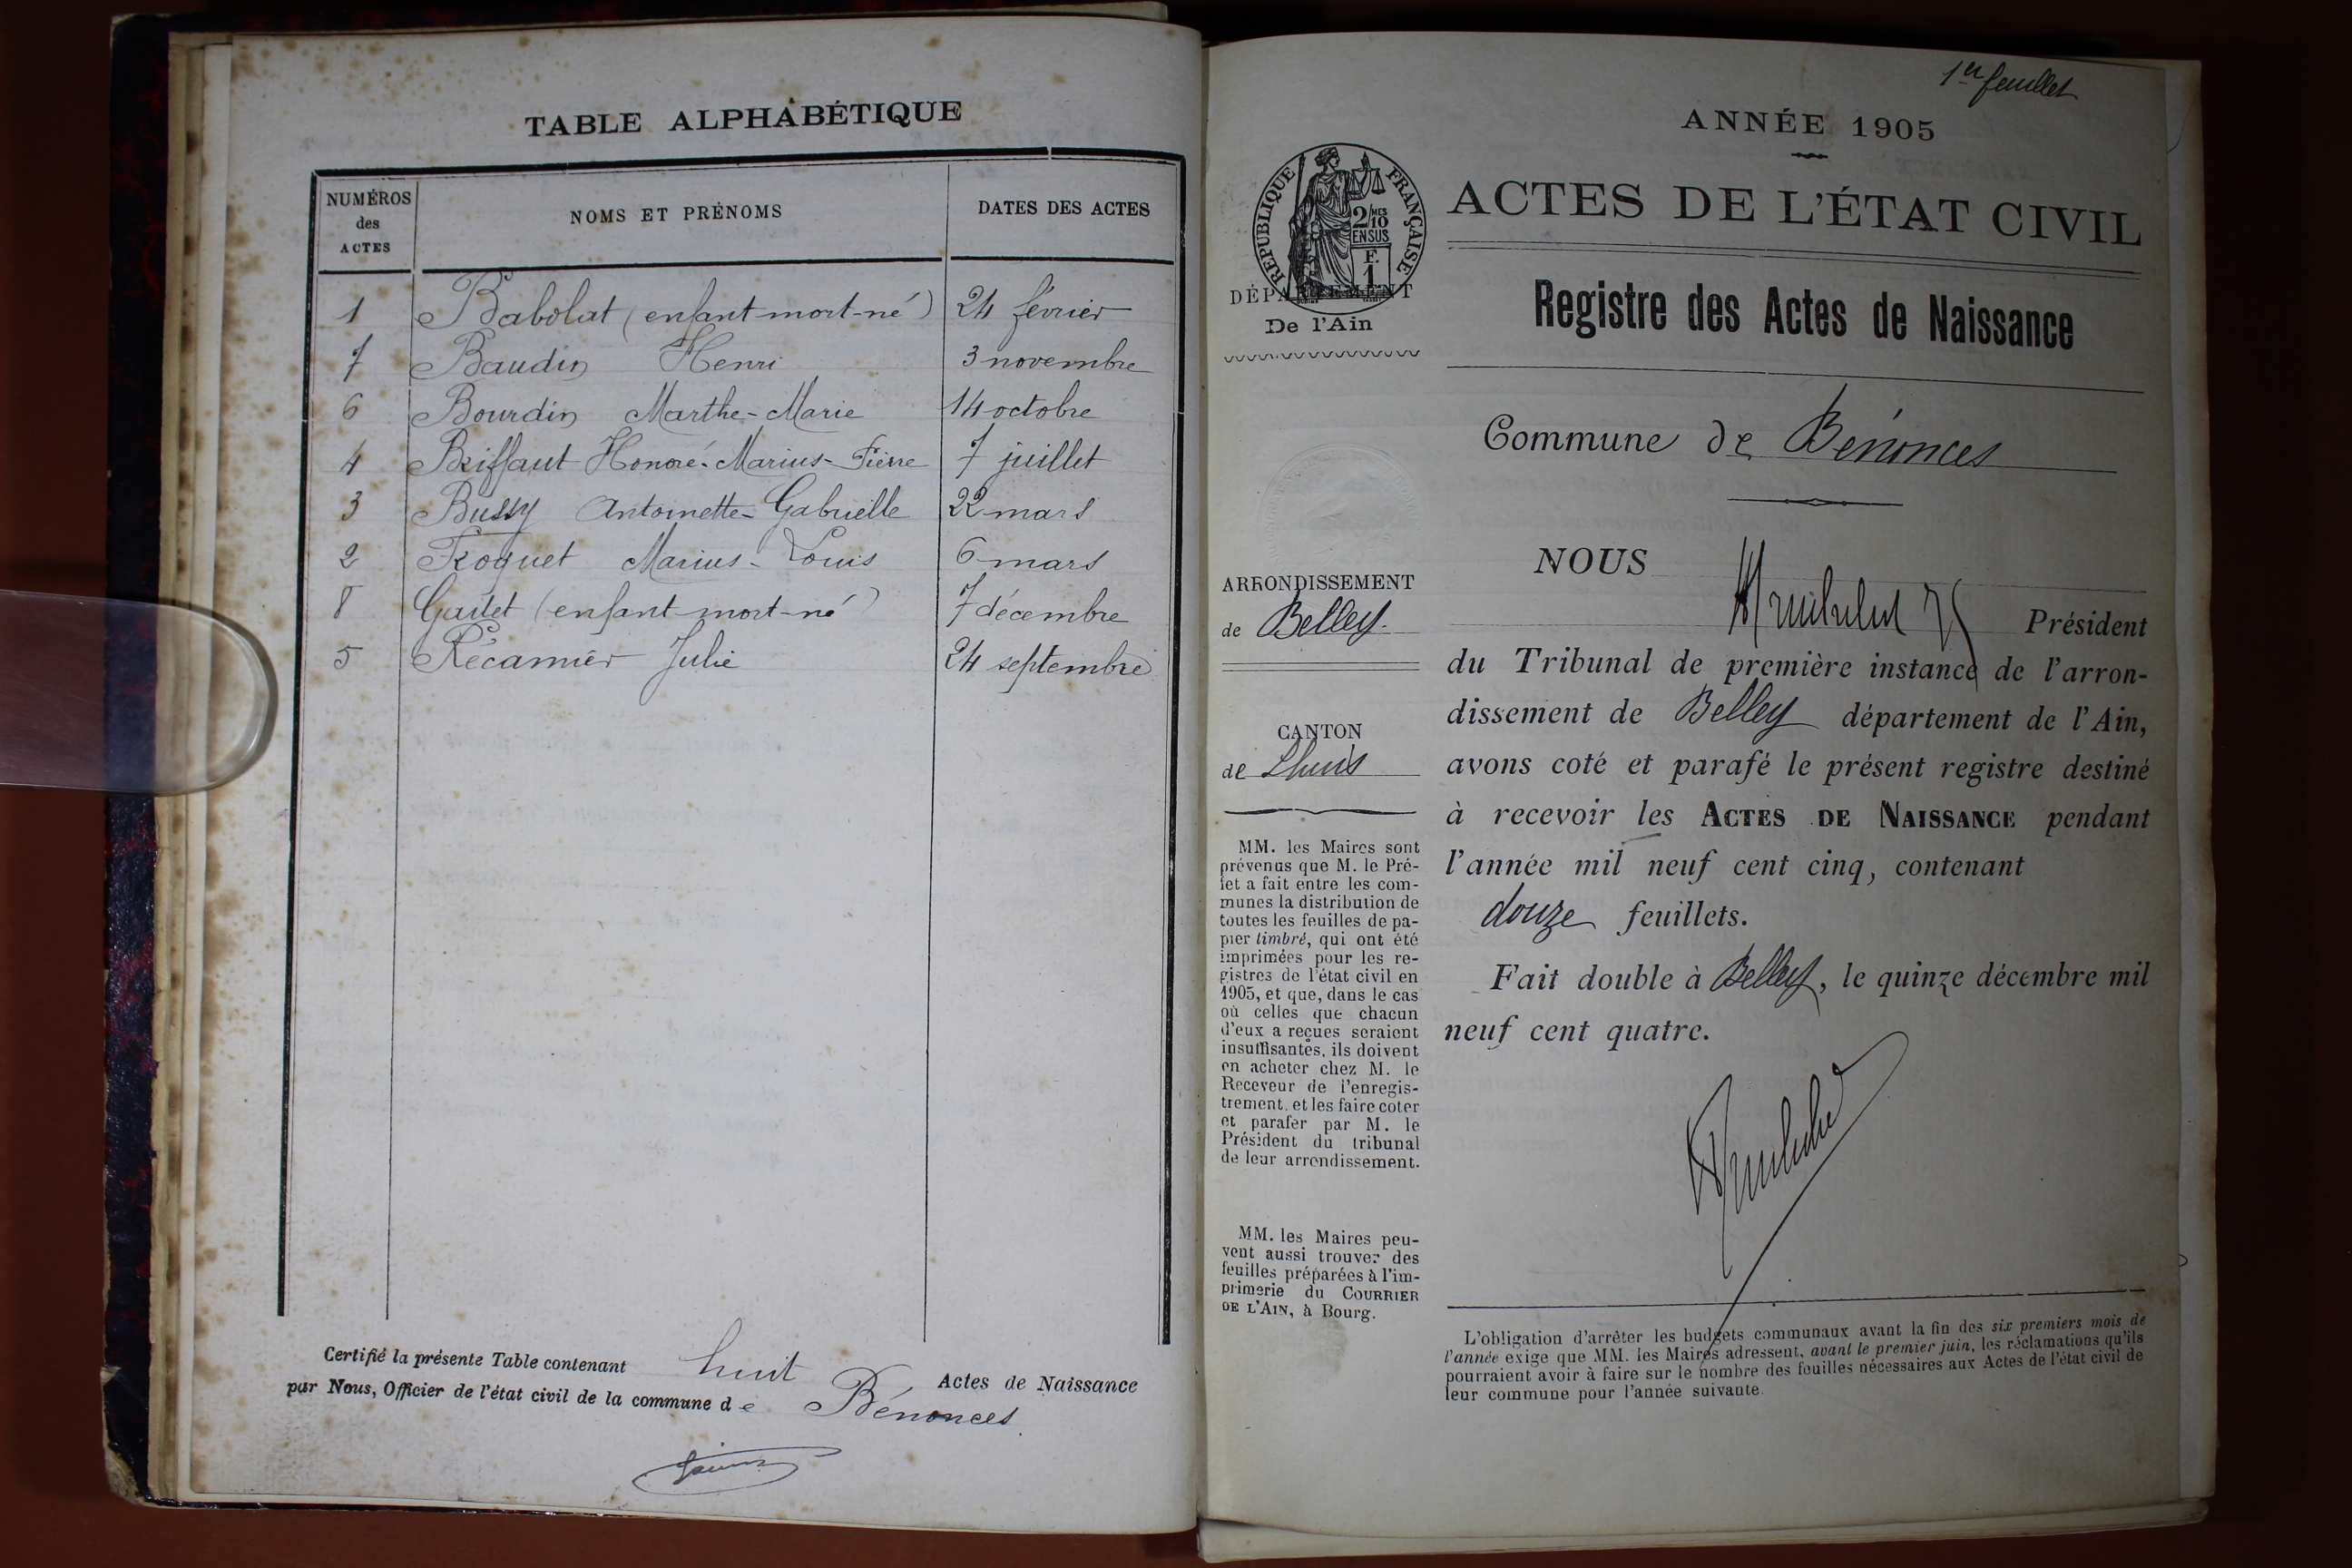 TABLE ALPHABÉTIQUE
NUMÉROS des ACTES NOMS ET PRÉNOMS DATES DES ACTES
1 Babolat (enfant mort-né) 24 février
7 Baudin Henri 3 novembre
6 Bourdin Marthe-Marie 14 octobre
4 Briffaut Honoré-Marius-Pierre 7 juillet
3 Bussy Antoinette-Gabrielle 22 mars
2 Froquet Marius-Louis 6 mars
8 (enfant mort-né) 7 décembre
5 Récamier Julie 24 septembre
Certifié la présente Table contenant huit Actes de Naissance
par Nous, Officier de l'état civil de la commune de Bénonces
1er feuillet
ANNÉE 1905
RÉPUBLIQUE FRANÇAISE
2/MES
10
EN SUS
F.
1
DÉPARTEMENT
De l'Ain
ARRONDISSEMENT
de Belley.
CANTON
de Lhuis
MM. les Maires sont
prévenus que M. le Pré-
fet a fait entre les com-
munes la distribution de
toutes les feuilles de pa-
pier timbré, qui ont été
imprimées pour les re-
gistres de l'état civil en
1905, et que, dans le cas
où celles que chacun
d'eux a reçues seraient
insuffisantes, ils doivent
en acheter chez M. le
Receveur de l'enregis-
trement, et les faire coter
et parafer par M. le
Président du tribunal
de leur arrondissement.
MM. les Maires peu-
vent aussi trouver des
feuilles préparées à l'im-
primerie du COURRIER
DE L'AIN, à Bourg.
ACTES DE L'ÉTAT CIVIL
Registre des Actes de Naissance
Commune de Bénonces
NOUS
Président
du Tribunal de première instance de l'arron-
dissement de Belley département de l'Ain,
avons coté et parafé le présent registre destiné
à recevoir les ACTES DE NAISSANCE pendant
l'année mil neuf cent cinq, contenant
douze feuillets.
Fait double à Belley, le quinze décembre mil
neuf cent quatre.
L'obligation d'arrêter les budgets communaux avant la fin des six premiers mois de
l'année exige que MM. les Maires adressent, avant le premier juin, les réclamations qu'ils
pourraient avoir à faire sur le nombre des feuilles nécessaires aux Actes de l'état civil de
leur commune pour l'année suivante.